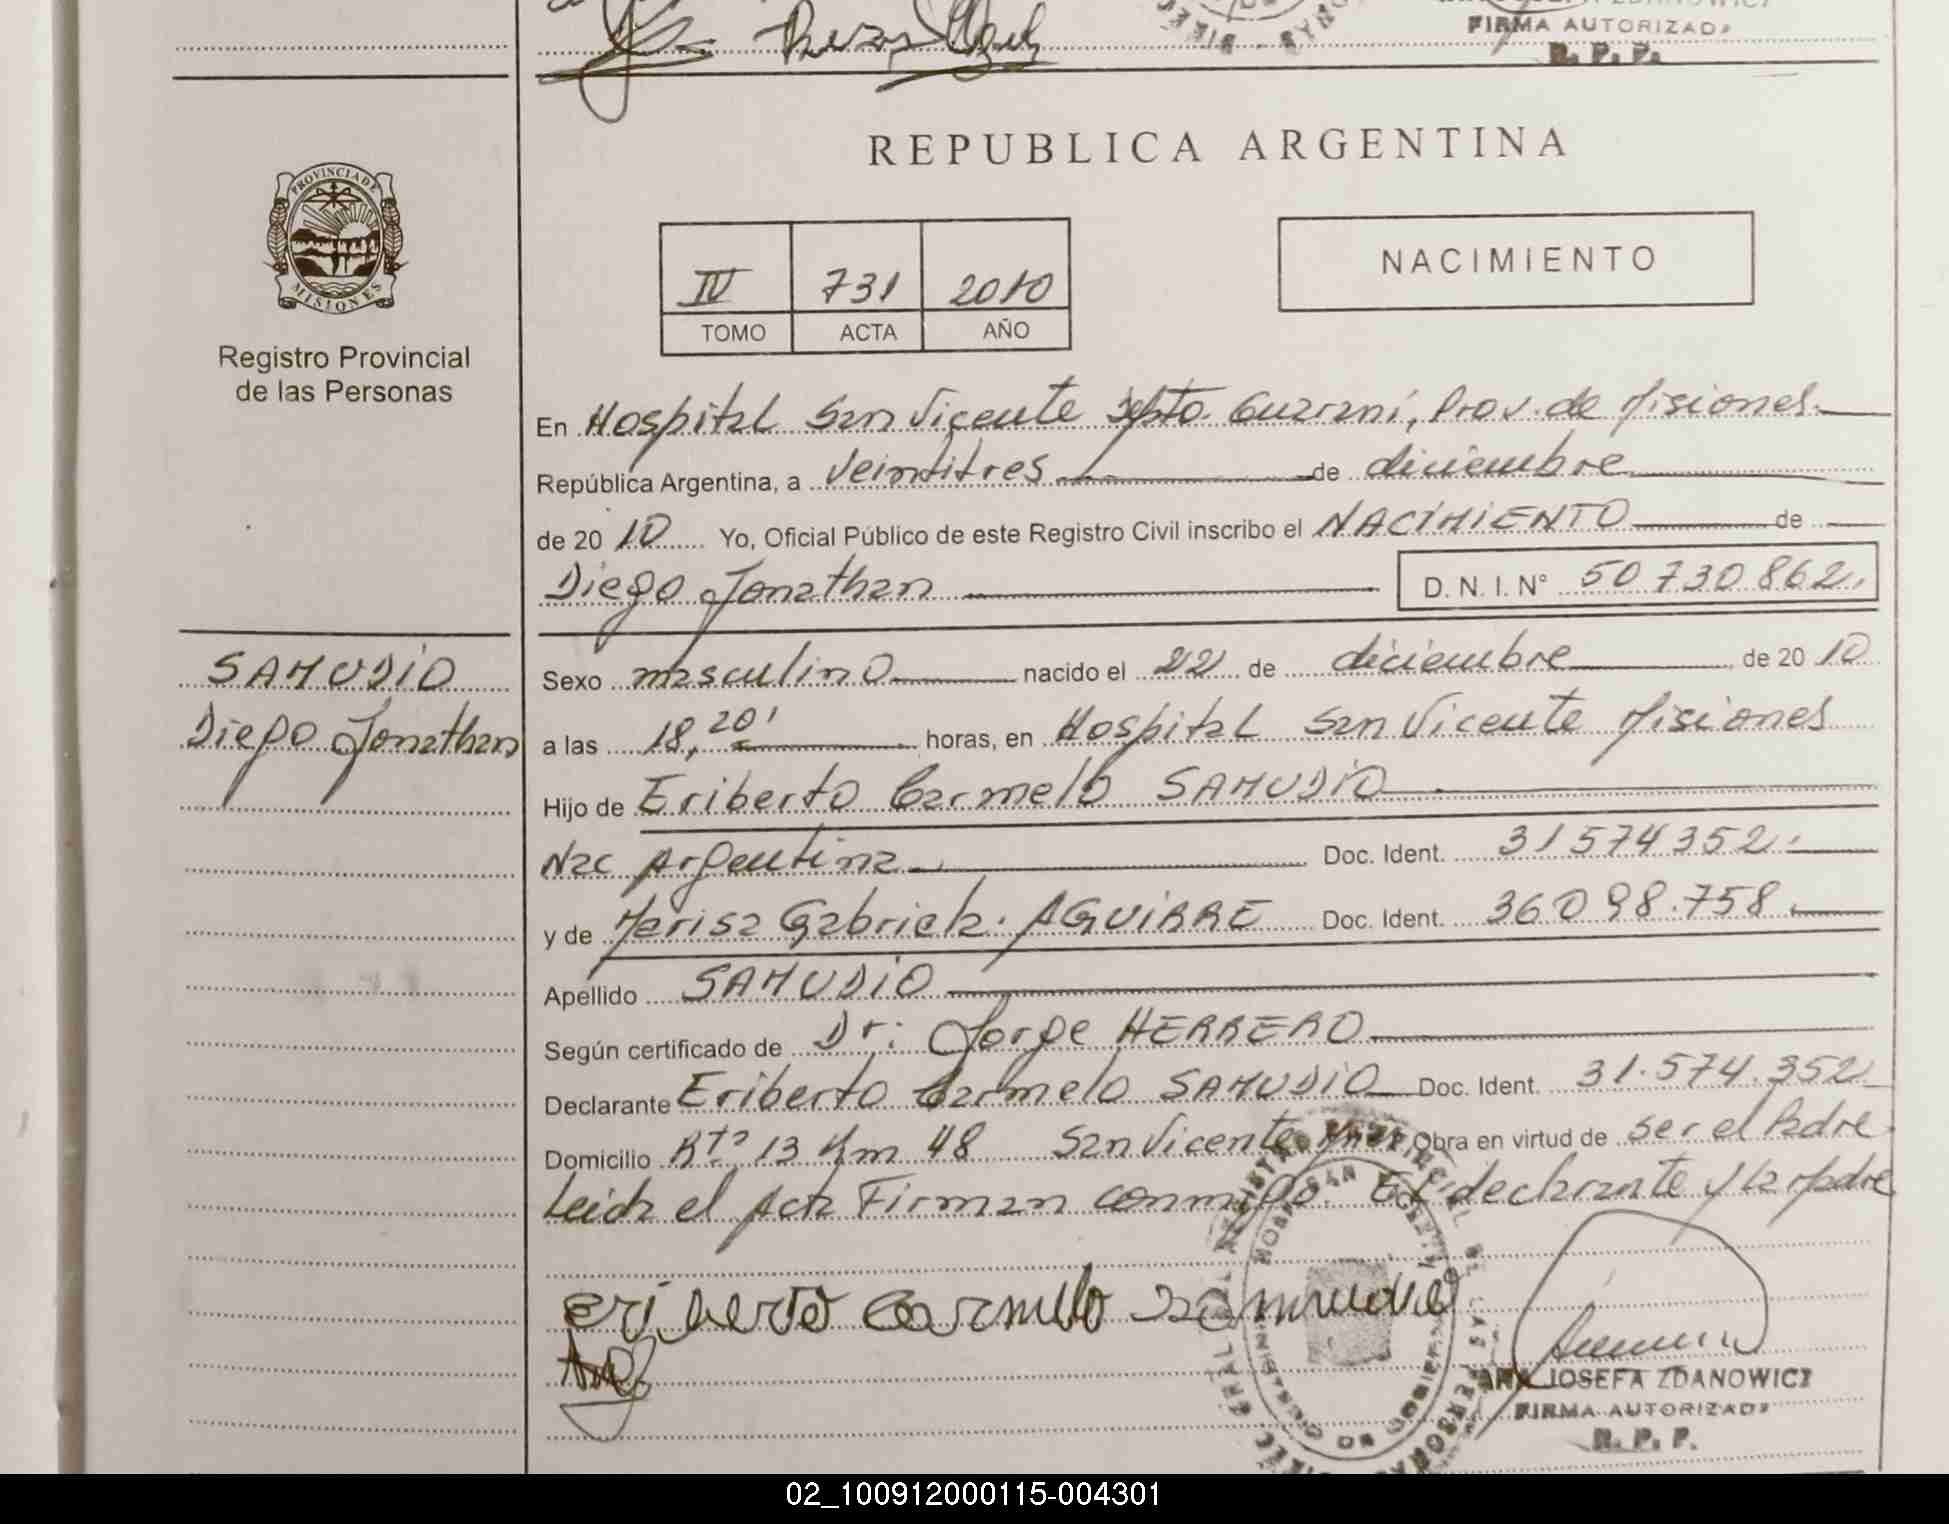 FIRMA AUTORIZADA
R. P. P.
REPUBLICA ARGENTINA
PROVINCIA DE
MISIONES
Registro Provincial
de las Personas
IV 731 2010
TOMO ACTA AÑO
NACIMIENTO
En Hospital San Vicente Dpto. Guaraní, Prov. de Misiones
República Argentina, a veintitres de diciembre
de 2010 Yo, Oficial Público de este Registro Civil inscribo el NACIMIENTO de
Diego Jonathan D.N.I. N° 50.730.862.
SAMUDIO
Diego Jonathan
Sexo masculino nacido el 22 de diciembre de 2010
a las 18,20' horas, en Hospital San Vicente Misiones
Hijo de Eriberto Carmelo SAMUDIO
Nac Argentina Doc. Ident. 31574352.
y de Marisa Gabriela AGUIRRE Doc. Ident. 36098.758.
Apellido SAMUDIO
Según certificado de Dr: Jorge HERRERO
Declarante Eriberto Carmelo SAMUDIO Doc. Ident. 31.574.352
Domicilio Rta 13 Km 48 San Vicente Mnes Obra en virtud de ser el Padre
Leida el Acta Firman conmigo. El declarante y la Madre
eriberto Carmelo Samudio
JOSEFA ZDANOWICZ
FIRMA AUTORIZADA
R. P. P.
02_100912000115-004301